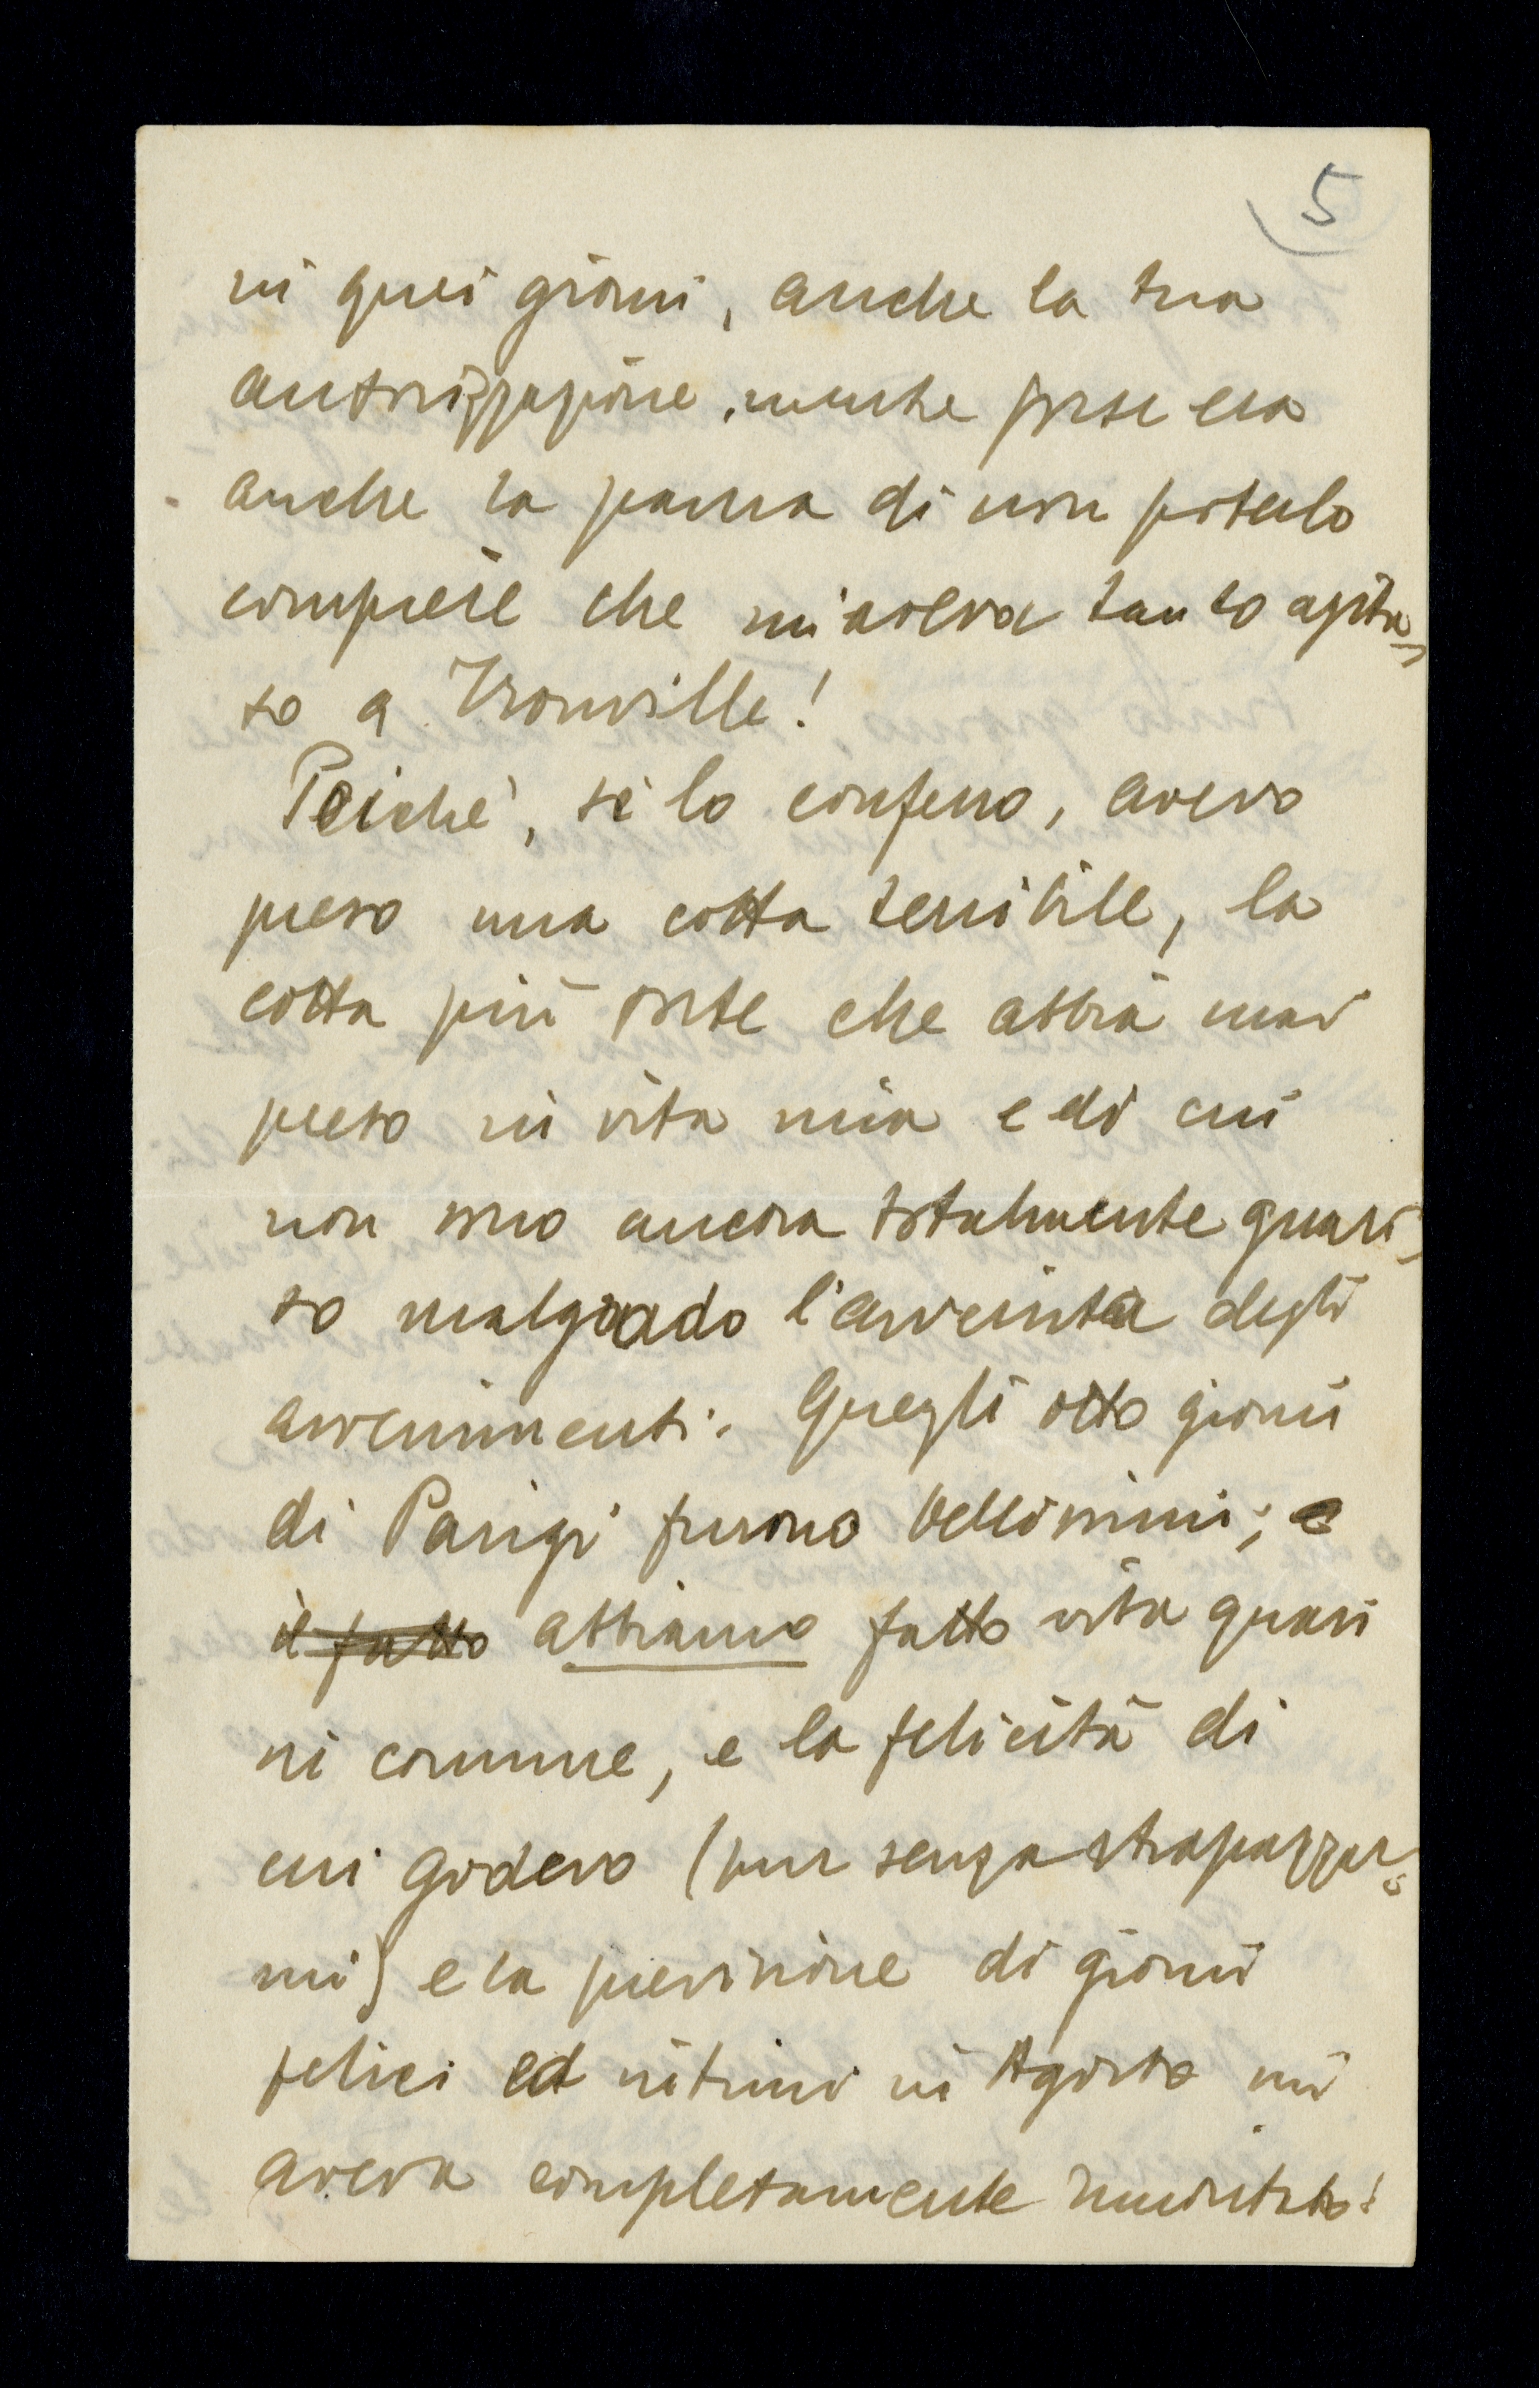 5
in quei giorni, anche la tua
autorizzazione, mentre forse era
anche la paura di non poterlo
compiere che mi aveva tanto agita=
to a Trouville!
Perchè, te lo confesso, avevo
preso una cotta terribile, la
cotta più forte che abbia mai
preso in vita mia e di cui
non sono ancora totalmente guari=
to malgrado l'avvenuta degli
avvenimenti. Quegli otto giorni
di Parigi furono bellissimi; e
il fatto abbiamo fatto vita quasi
in comune, e la felicità di
cui godevo (pur senza strapazzar=
mi) e la previsione di giorni
felici ed intimi in Agosto mi
aveva completamente rimontato!